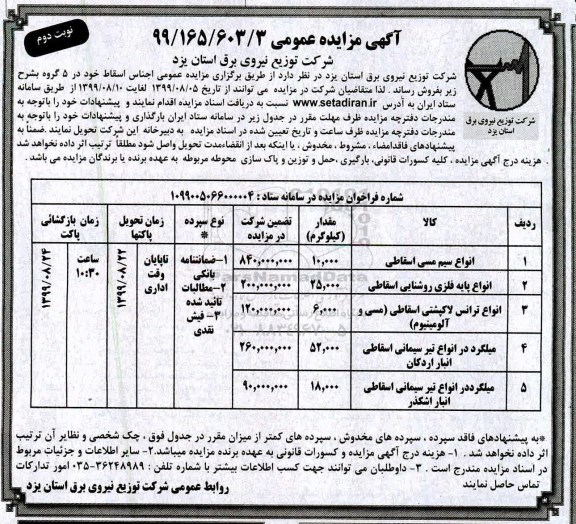 نوبت دوم
آگهی مزایده عمومی ۹۹/۱۶۵/۶۰۳/۳
شرکت توزیع نیروی برق استان یزد
شرکت توزیع نیروی برق
استان یزد
شرکت توزیع نیروی برق استان یزد در نظر دارد از طریق برگزاری مزایده عمومی اجناس اسقاط خود در ۵ گروه بشرح
زیر بفروش رساند . لذا متقاضیان شرکت در مزایده می توانند از تاریخ ۱۳۹۹/۰۸/۰۵ لغایت ۱۳۹۹/۰۸/۱۰ از طریق سامانه
ستاد ایران به آدرس www.setadiran.ir نسبت به دریافت اسناد مزایده اقدام نمایند و پیشنهادات خود را باتوجه به
مندرجات دفترچه مزایده ظرف مهلت مقرر در جدول زیر در سامانه ستاد ایران بارگذاری و پیشنهادات خود را باتوجه به
مندرجات دفترچه مزایده ظرف ساعت و تاریخ تعیین شده در اسناد مزایده به دبیرخانه این شرکت تحویل نمایند. ضمنا به
پیشنهادهای فاقدامضاء ، مشروط ، مخدوش ، یا اینکه بعد از انقضاءمدت تحویل واصل شود مطلقا ترتیب اثر داده نخواهد شد
. هزینه درج آگهی مزایده ، کلیه کسورات قانونی، بارگیری ،حمل و توزین و پاک سازی محوطه مربوطه به عهده برنده یا برندگان مزایده می باشد .
شماره فراخوان مزایده در سامانه ستاد : ۱۰۹۹۰۰۵۰۶۶۰۰۰۰۰۴
ردیف کالا مقدار (کیلوگرم) تضمین شرکت در مزایده نوع سپرده * زمان تحویل پاکتها زمان بازگشائی پاکت
۱ انواع سیم مسی اسقاطی ۱۰,۰۰۰ ۸۴۰,۰۰۰,۰۰۰
۲ انواع پایه فلزی روشنایی اسقاطی ۲۵,۰۰۰ ۲۰۰,۰۰۰,۰۰۰
۳ انواع ترانس لاکپشتی اسقاطی (مسی و آلومینیوم) ۶,۰۰۰ ۱۲۰,۰۰۰,۰۰۰
۴ میلگرد در انواع تیر سیمانی اسقاطی انبار اردکان ۵۲,۰۰۰ ۲۶۰,۰۰۰,۰۰۰
۵ میلگرددر انواع تیر سیمانی اسقاطی انبار اشکذر ۱۸,۰۰۰ ۹۰,۰۰۰,۰۰۰
۱-ضمانتنامه بانکی
۲-مطالبات تائید شده
۳- فیش نقدی
تاپایان وقت اداری ۱۳۹۹/۰۸/۲۲
ساعت ۱۰:۳۰ ۱۳۹۹/۰۸/۲۴
ParsNamadData
*به پیشنهادهای فاقد سپرده ، سپرده های مخدوش ، سپرده های کمتر از میزان مقرر در جدول فوق ، چک شخصی و نظایر آن ترتیب
اثر داده نخواهد شد . ۱- هزینه درج آگهی مزایده و کسورات قانونی به عهده برنده مزایده میباشد.۲- سایر اطلاعات و جزئیات مربوط
در اسناد مزایده مندرج است . ۳- داوطلبان می توانند جهت کسب اطلاعات بیشتر با شماره تلفن : ۳۶۲۴۸۹۸۹-۰۳۵ امور تدارکات
تماس حاصل نمایند
روابط عمومی شرکت توزیع نیروی برق استان یزد